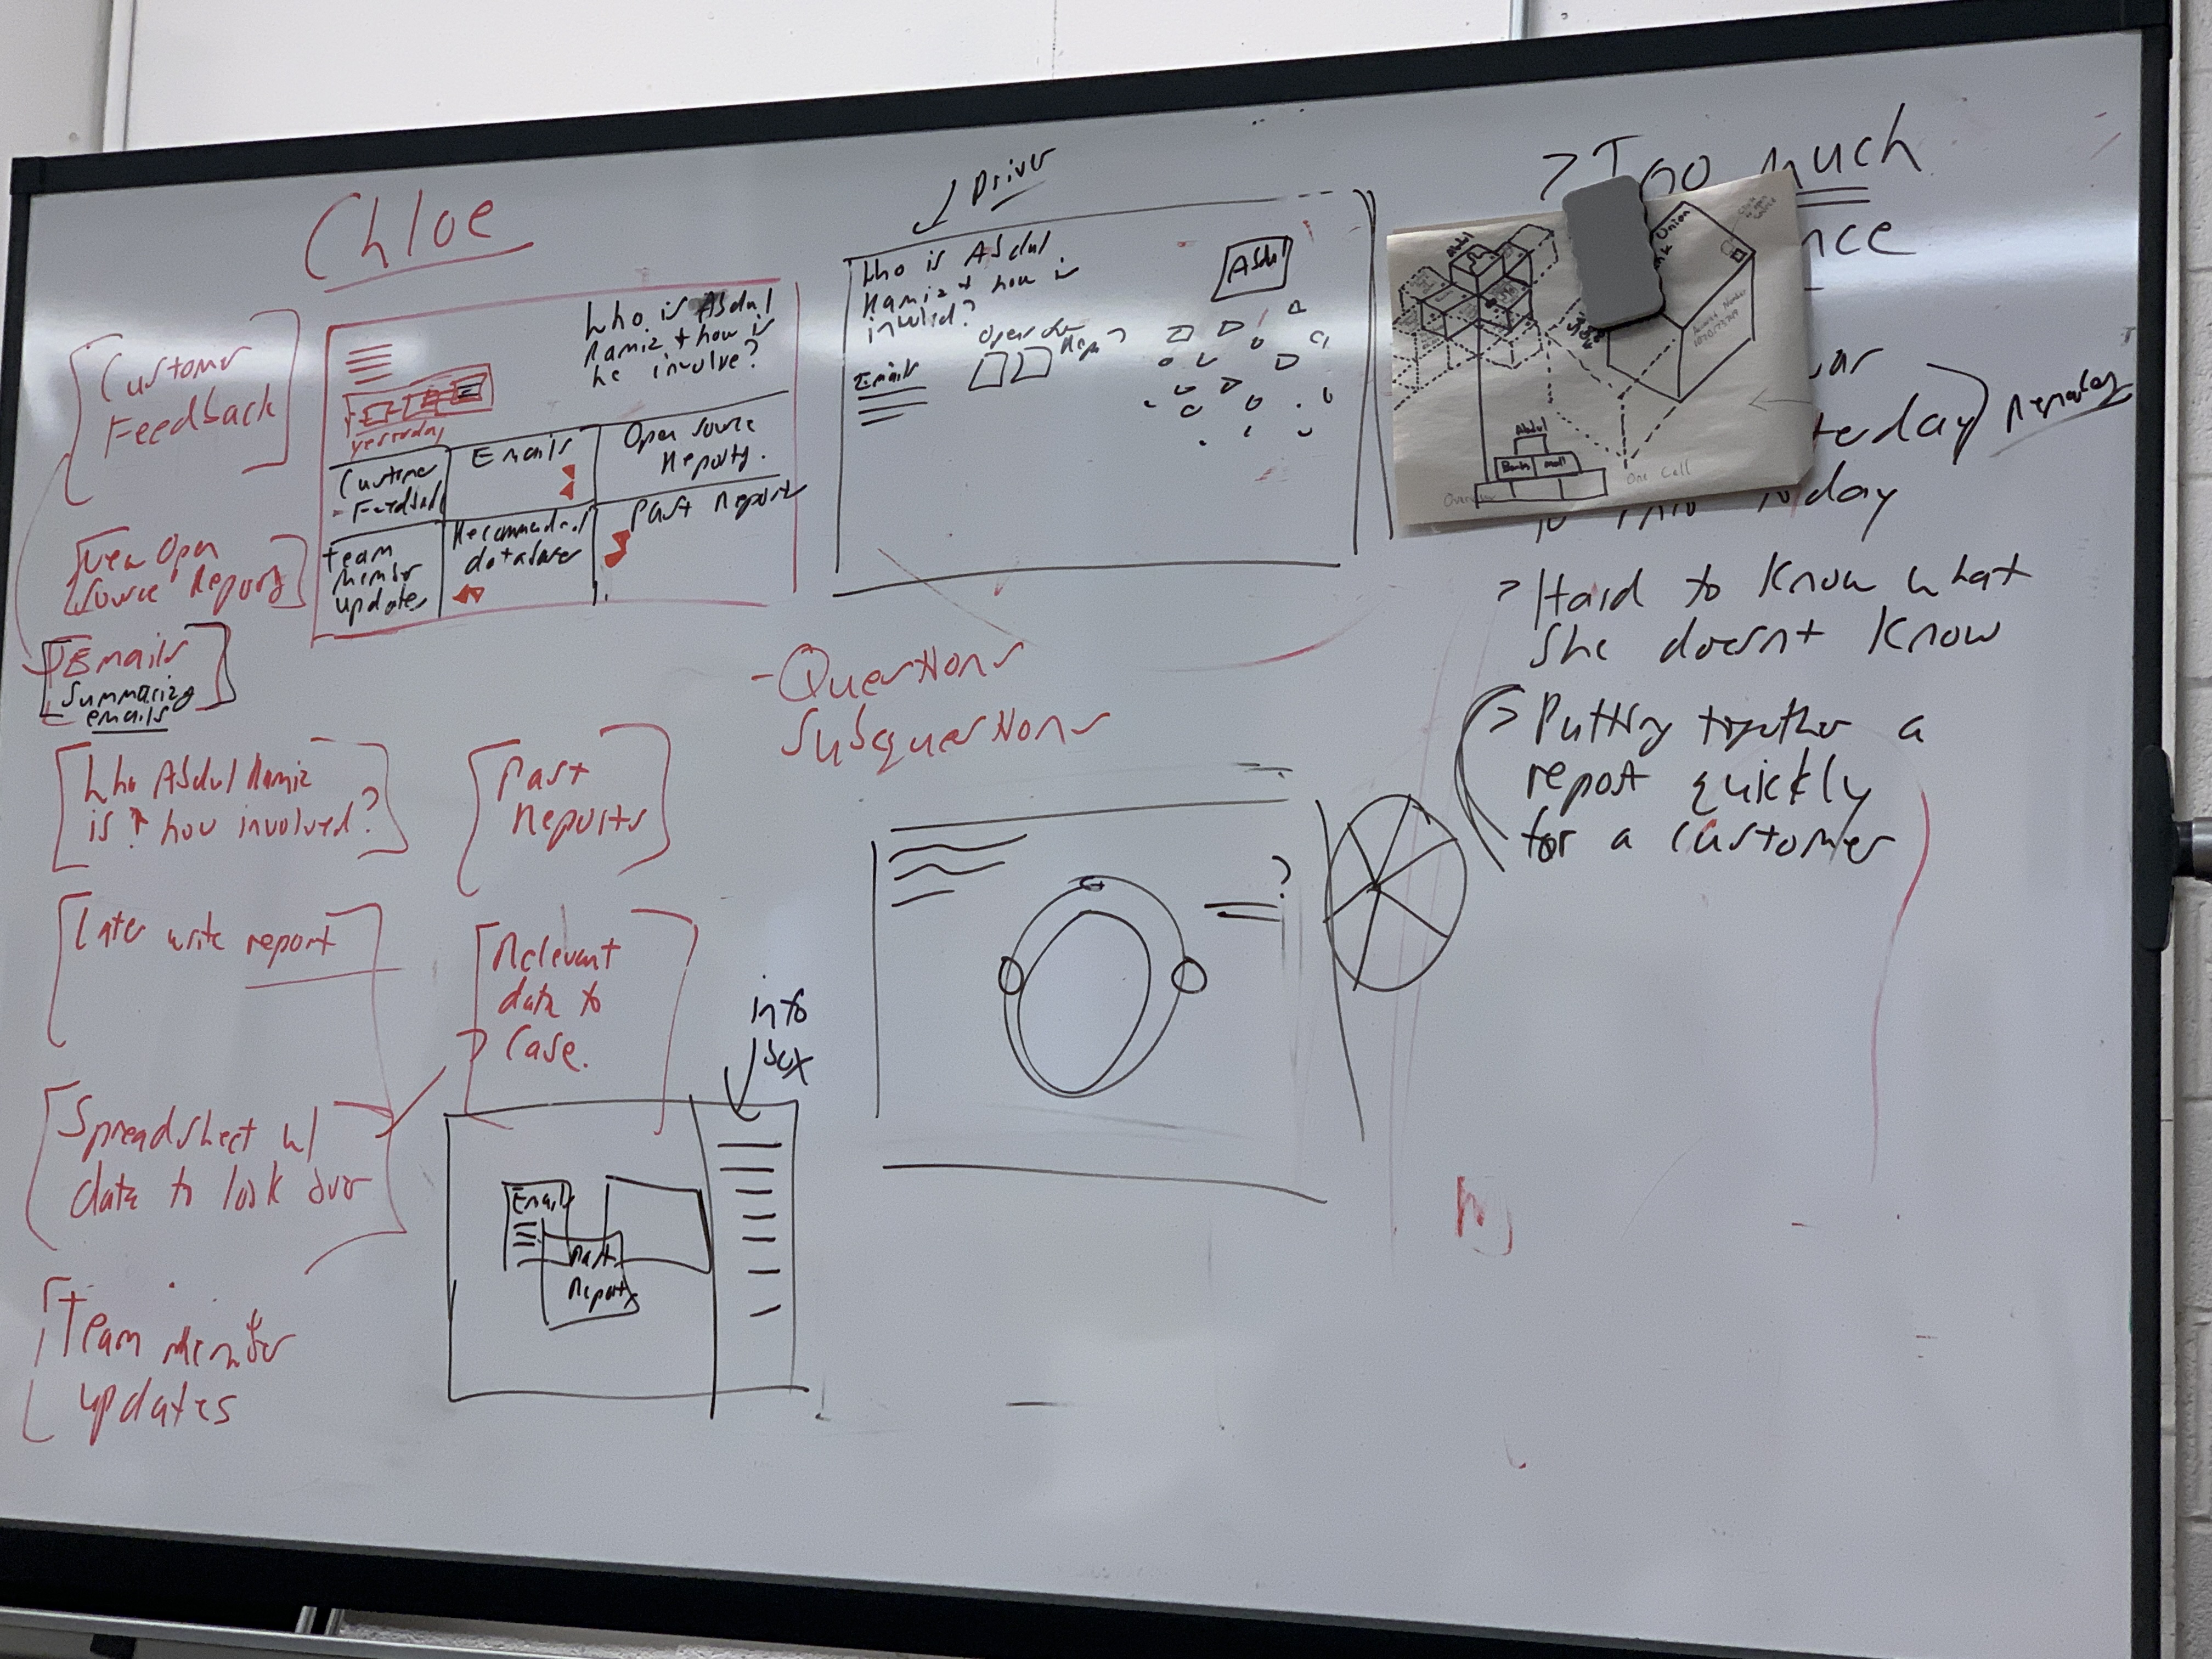 Chloe
Customer
Feedback
View Open
Source Reports
Emails
Summarizing
emails
Who Abdul Ramiz
is & how involved?
Later write report
Spreadsheet w/
data to look over
Team Member
updates
Past
Reports
Relevant
data to
Case.
Who is Abdul
Ramiz & how is
he involve?
yesterday
Customer
Feedback
Emails
Open source
Reports.
Team
Member
updates
Recommended
database
Past Reports
Driver
Who is Abdul
Ramiz & how is
involved?
Emails
Open
Abdul
- Questions
Subquestions
info
box
Emails
Past
Reports
?
> Too much
nce
terday
today
> Hard to know what
she doesnt know
> Putting together a
report quickly
for a customer
Abdul
Union
Abdul
Banks
Mail
One Call